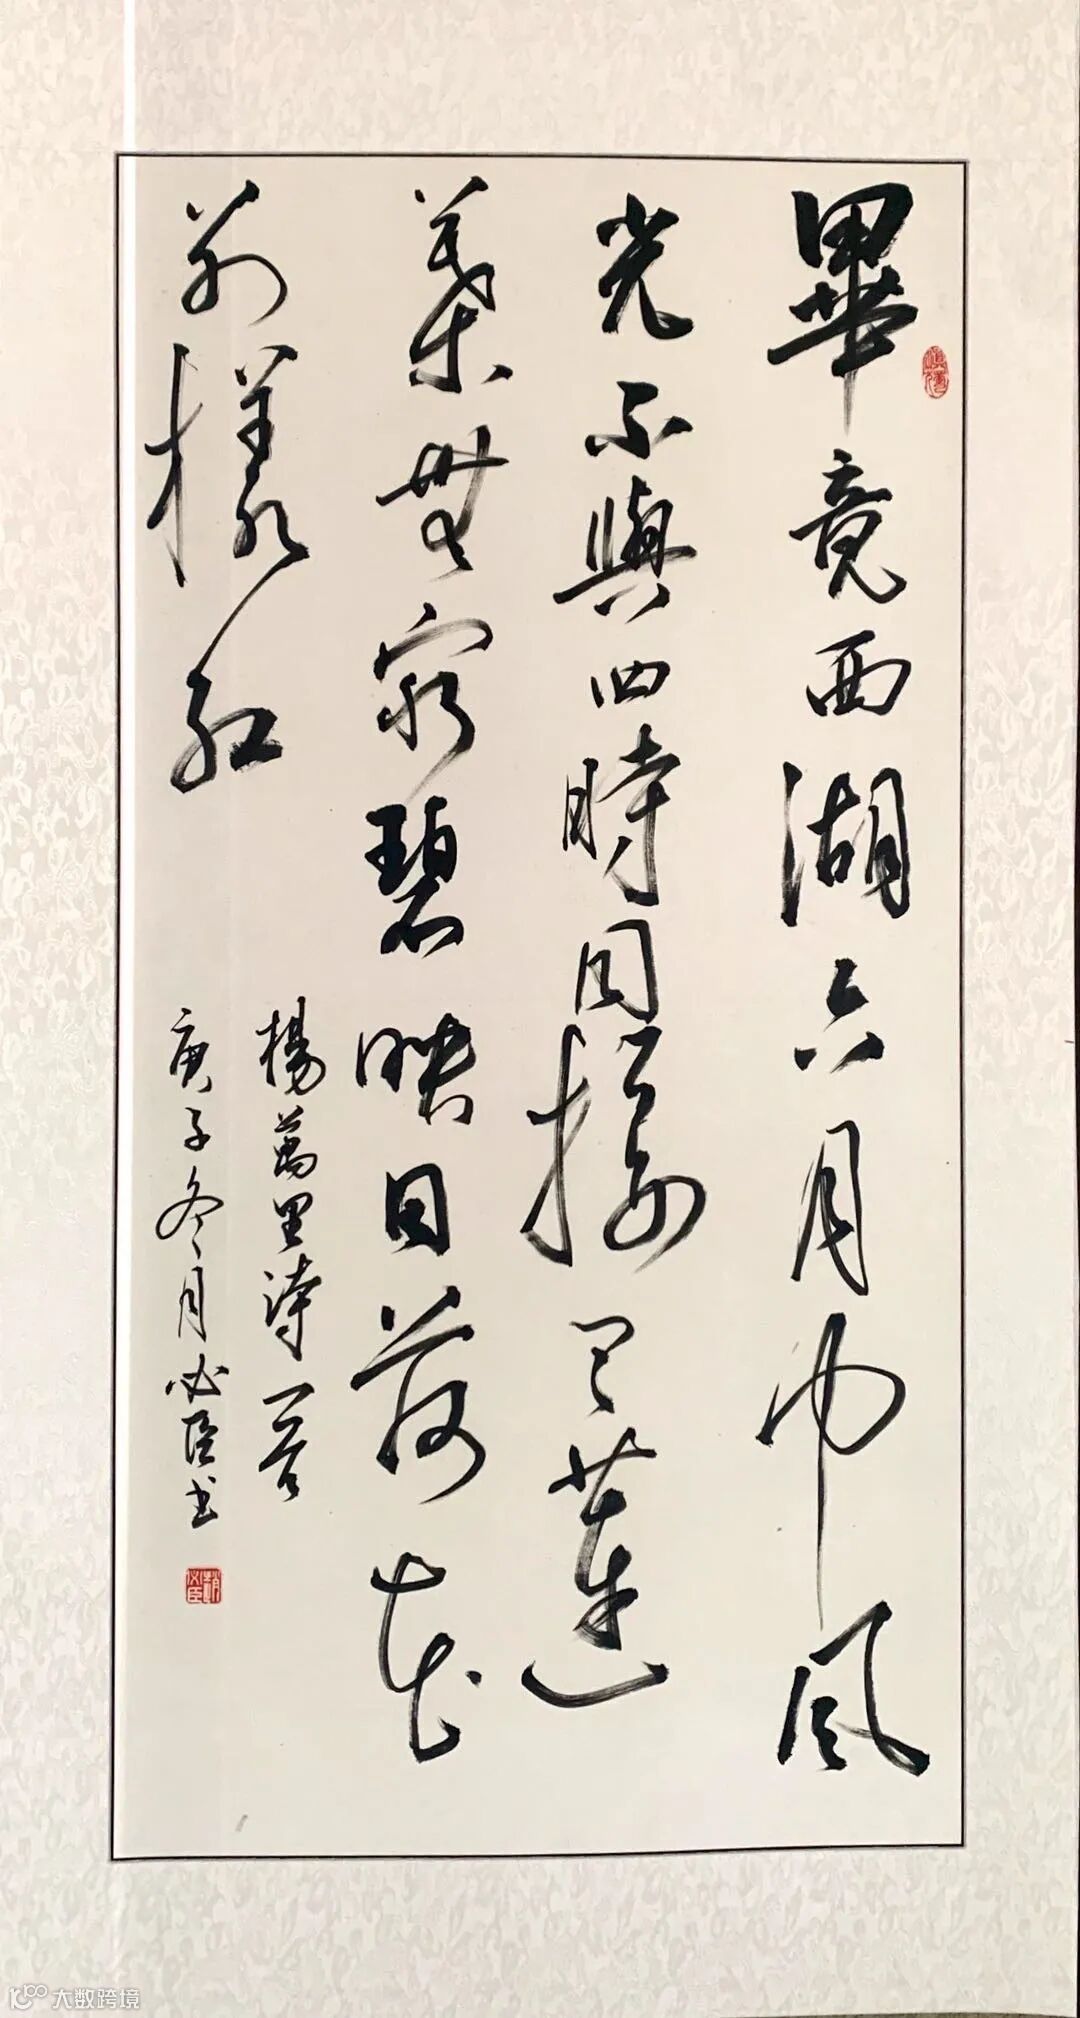 畢竟西湖六月中風
光不與四時同接天蓮
葉無窮碧映日荷花
別樣紅
楊萬里詩一首
庚子冬月必臣书
大数跨境